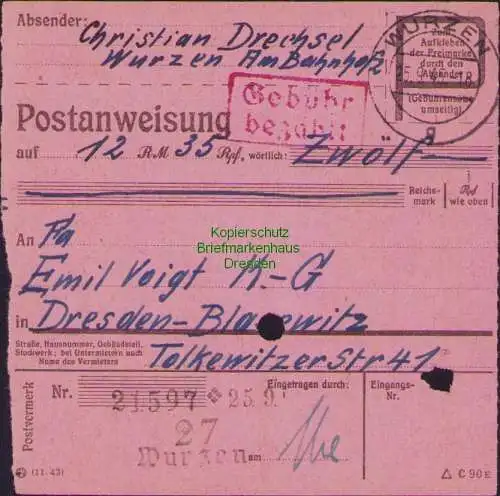 Absender:
Christian Drechsel
Wurzen Am Bahnhof 2
WURZEN
Zum
Aufkleben
der Freimarke
durch den
Absender
(Gebührensätze
umseitig)
g
Gebühr
bezahlt
Postanweisung
auf 12 RM 35 Rpf, wörtlich: Zwölf
Reichsmark Rpf wie oben
An Fa
Kopierschutz
Briefmarkenhaus
Dresden
Emil Voigt K.-G
in Dresden-Blasewitz
Straße, Hausnummer, Gebäudeteil,
Stockwerk; bei Untermietern auch
Name des Vermieters
Tolkewitzer Str 41
Postvermerk
Nr. 21597 * 25.9.
Eingetragen durch:
Eingangs-
Nr.
27
Wurzen am
(11.43)
C 90 E